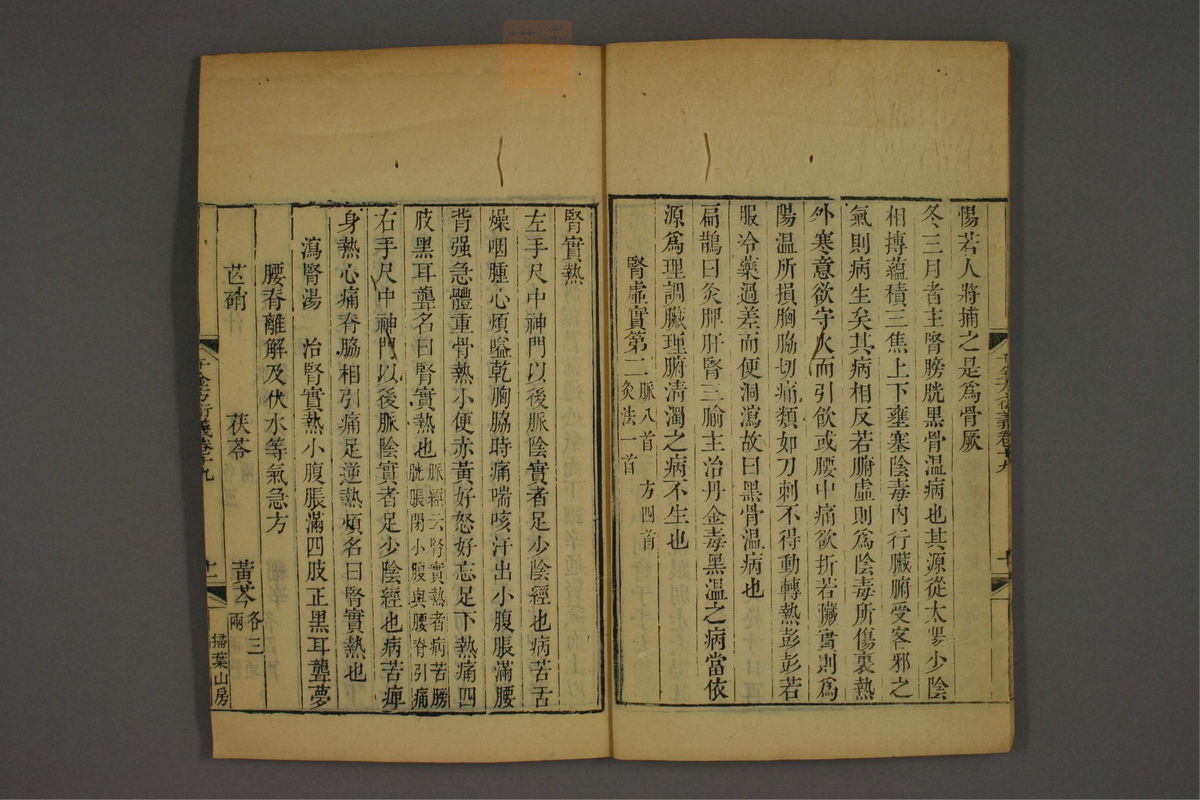 傷若人將捕之是爲骨厥
冬三月者主腎膀胱黑骨温病也其源從太陽少陰
相摶蘊積三焦上下壅塞陰毒內行臟腑受客邪之
氣則病生矣其病相反若腑虛則爲陰毒所傷裏熱
外寒意欲守火而引飲或腰中痛欲折若臟實則爲
陽温所損胸脇切痛類如刀刺不得動轉熱彭彭若
服冷藥過差而便洞瀉故曰黑骨温病也
扁鵲曰灸脾肝腎三腧主治丹金毒黑温之病當依
源爲理調臟理腑清濁之病不生也
腎虛實第二脈八首 方四首
灸法一首
腎實熱
左手尺中神門以後脈陰實者足少陰經也病苦舌
燥咽腫心煩嗌乾胸脇時痛喘咳汗出小腹脹滿腰
背强急體重骨熱小便赤黃好怒好忘足下熱痛四
肢黑耳聾名曰腎實熱也脈經云腎實熱者病苦膀
胱脹閉小腹與腰脊引痛
右手尺中神門以後脈陰實者足少陰經也病苦痺
身熱心痛脊脇相引痛足逆熱煩名曰腎實熱也
瀉腎湯 治腎實熱小腹脹滿四肢正黑耳聾夢
腰脊離解及伏水等氣急方
芒硝 茯苓 黃芩各三
兩
千金方衍義卷十九
十一
掃葉山房